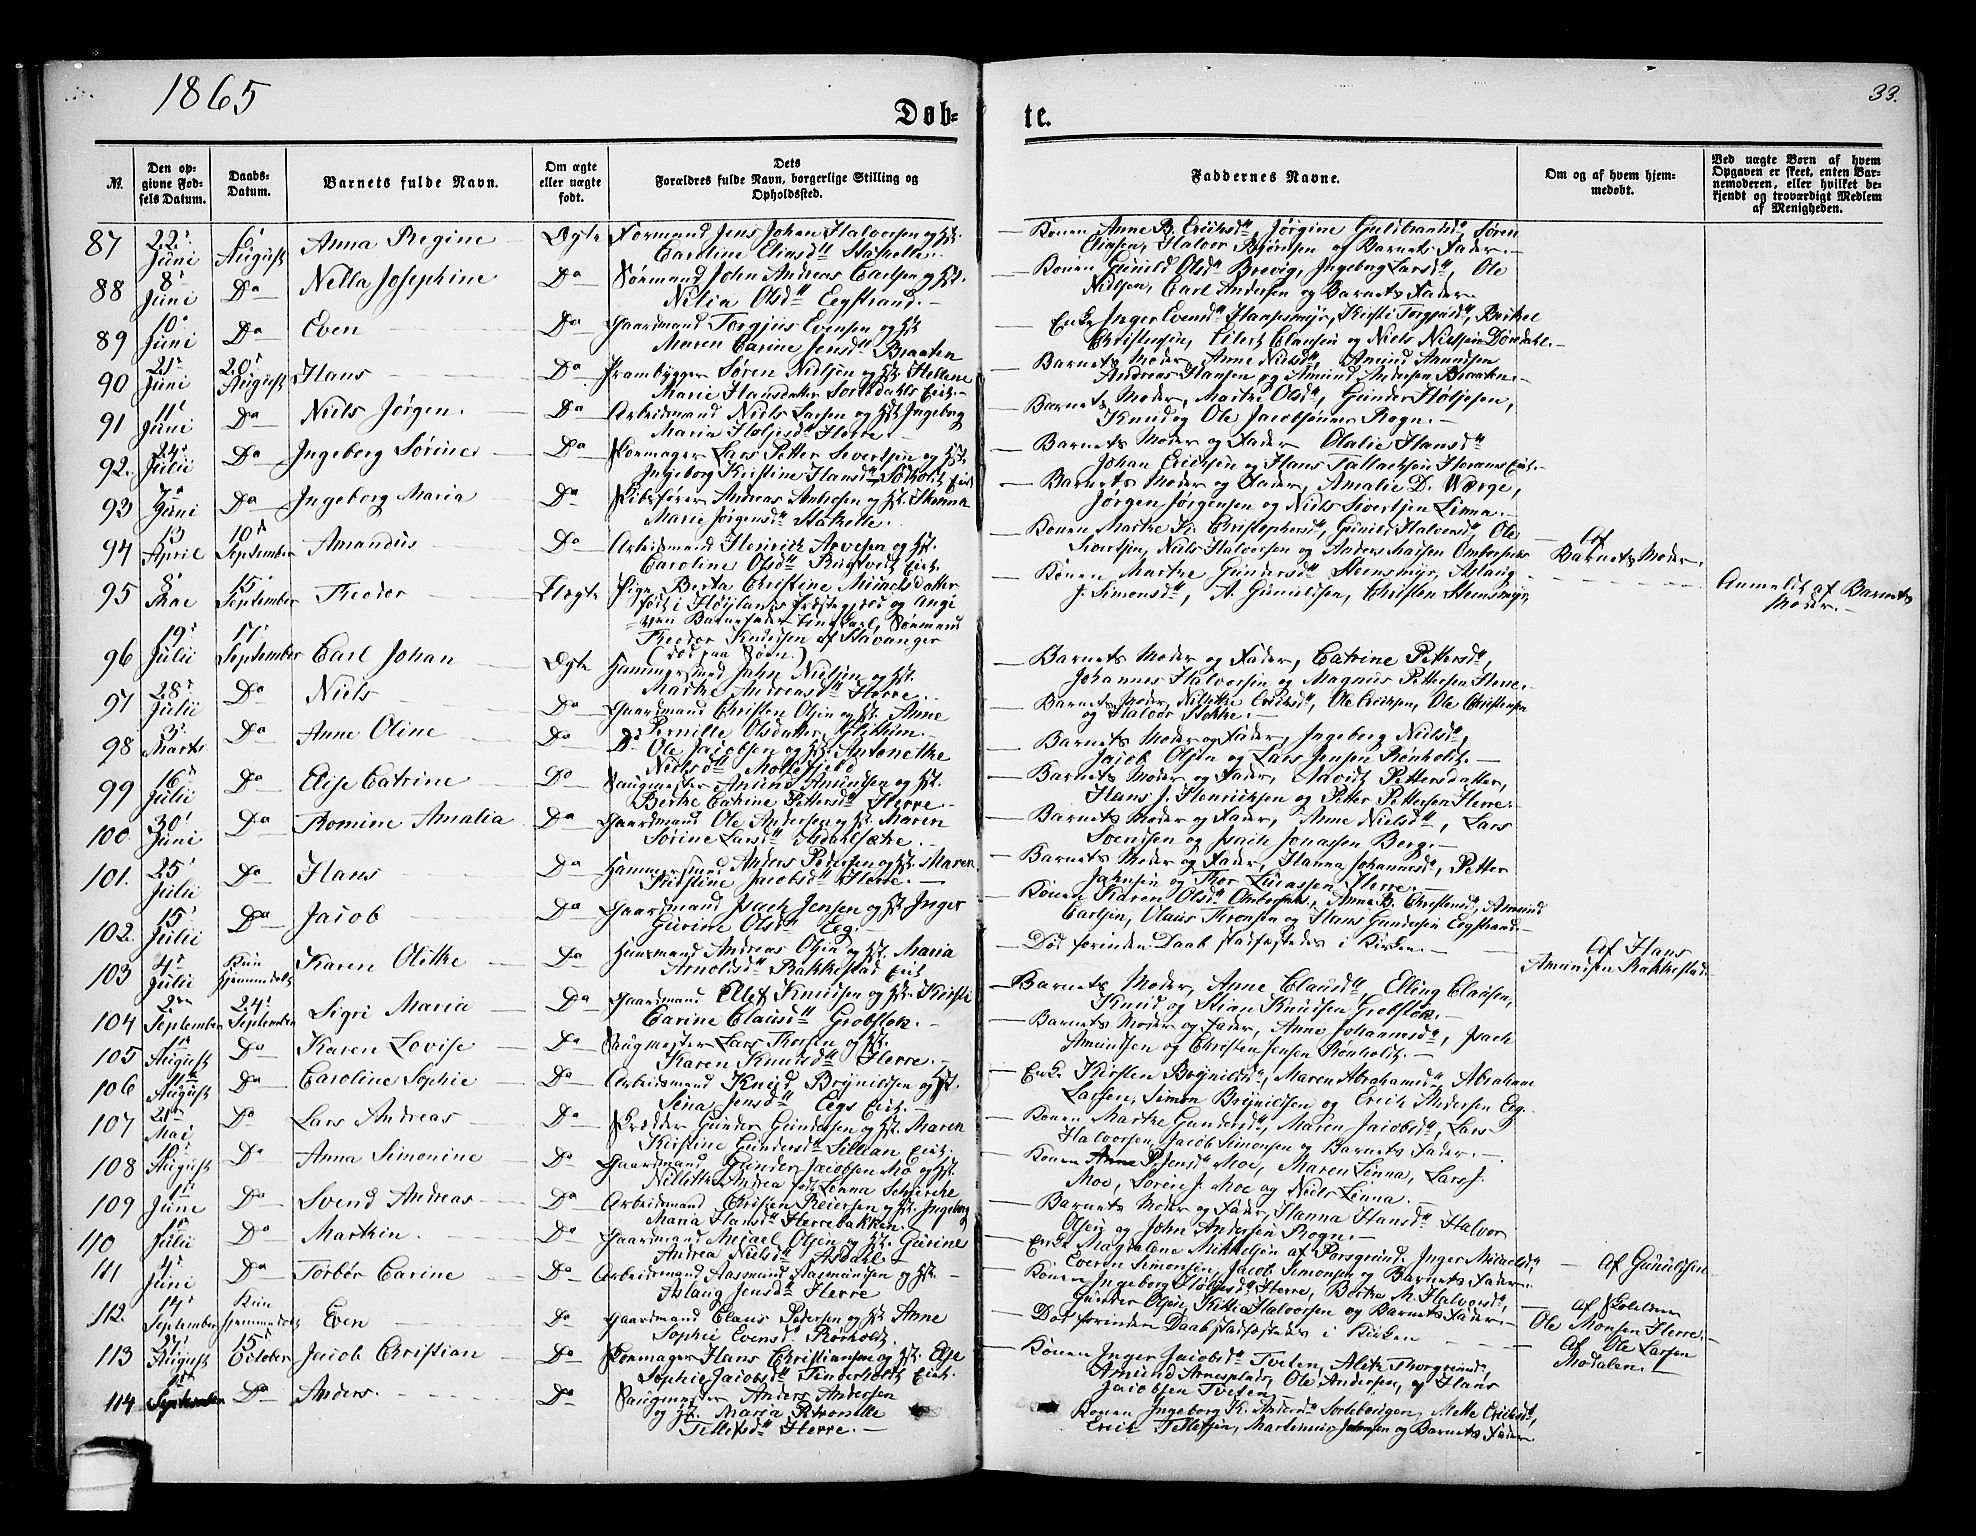 1865
33.
Døb-
te.
№.
Den op-
givne Fød-
sels Datum.
Daabs-
Datum.
Barnets fulde Navn.
Om ægte
eller uægte
født.
Dets
Forældres fulde Navn, borgerlige Stilling og
Opholdssted.
Faddernes Navne.
Om og af hvem hjem-
medøbt.
Ved uægte Børn af hvem
Opgaven er skeet, enten Bar-
nemoderen, eller hvilket be-
kjendt og troværdigt Medlem
af Menigheden.
87 22 Juni 6 August Anna Regine Ægte Formand Jens Johan Halvorsen og
Caroline Eliasd Stathelle.
Konen Anne B. Eriksd, Jørgine Guldbrandsd, Søren
Eliasen, Halvor Bjørnsen og Barnets Fader.
88 8 Juni Do Nella Josephine Do Sørmand John Andreas Carlsen og
Nilia Olsd Eegstrand.
Konen Gunild Olsd Brevig, Ingeborg Larsd, Ole
Nielsen, Carl Andersen og Barnets Fader.
89 10 Juni Do Even Do Gaardmand Torgjus Evensen og
Maren Carine Jensd Braaten
Enke Inger Evensd
Christensen, Eilert Clausen og Niels Nielsen Døndahl.
90 21 Juni 20 August Hans Do Prambygger Søren Nielsen og Hellene
Marie Hansdatter
Barnets Moder, Anne Nielsd, Amund Amundsen
Andreas Hansen og Amund Andersen Braaten.
91 11 Juni Do Niels Jørgen. Do Arbeidsmand Niels Larsen og Ingeborg
Maria Høljesd Herre.
Barnets Moder, Marthe Olsd, Gunder Høljesen,
Knud og Ole Jacobsønner Rogn.
92. 24 Julii Do Ingeborg Sørine Do Skomager Lars Petter Sivertsen og
Ingeborg Kristine Hansd
Barnets Moder og Fader Olalie Hansd
Johan Ericksen og Hans Tallacksen
93 7 Juni Do Ingeborg Maria Do Skibsfører Andreas Andersen og
Marie Jørgensd Stathelle.
Barnets Moder og Fader, Amalie D. Worge,
Jørgen Jørgensen og Niels Sivertsen Linna.
94 13 April 10 September Amandus Do Arbeidsmand Heinrich Arvesen og
Caroline Olsd Rugtvedt
Konen Marthe K. Christophersd, Gunild Halvorsd, Ole
Sivertsen, Niels Halvorsen og Anders
Af
Barnets Moder.
95 8 Mai 15 September Theodor Uægte Pige Berta Christine Michelsdatter
født i Høylands Præstegjeld og angi
ven Barnefader Ungkarl, Sømand
Theodor Knudsen af Stavanger
(død paa Søen.)
Konen Marthe Gundersd Steensmyr, Aslaug
J. Simonsd, A. Gunuldsen, Christen Steensmyr
Anmeldt af Barnets
Moder.
96 19 Julii 17 September Carl Johan Ægte Hammersmed Jahn Nielsen og
Marthe Andreasd Herre.
Barnets Moder og Fader, Catrine Pettersd,
Johannes Halvorsen og Magnus Pettersen Herre.
97 28 Julii Do Niels Do Gaardmand Christen Olsen og Anne
Pernille Olsdatter
Barnets Moder, Ericksd, Ole Ericksen, Ole Christensen
og Halvor Stokke.
98 3 Marts Do Anne Oline Do Do Ole Jacobsen og Antonethe
Nielsd
Barnets Moder og Fader, Ingeborg Nielsd,
Jacob Olsen og Lars Jensen Rønholt.
99 16 Julii Do Elise Catrine Do Saugmester Amund Amundsen og
Berthe Catrine Pettersd Herre.
Barnets Moder og Fader, Pettersdatter,
Hans J. Henricksen og Petter Pettersen Herre.
100. 30 Juni Do Romine Amalia Do Gaardmand Ole Andersen og Maren
Sørine Larsd
Barnets Moder og Fader, Anne Nielsd, Lars
Svendsen og Isach Jonassen Berg.
101. 25 Julii Do Hans Do Hammersmed Anders Pedersen og Maren
Kirstine Jacobsd Herre.
Barnets Moder og Fader, Hanna Johannesd, Petter
Jahnsen og Thor Lucassen Herre.
102. 15 Julii Do Jacob Do Gaardmand Isach Jensen og Inger
Gurine Olsd Eeg.
Konen Karen Olsd Anne B. Christensd, Amund
Carlsen, Olaus Thronsen og Hans Gundersen Eegstrand.
103 4 Julii Kun hjemmedøbt Karen Olithe Do Huusmand Andreas Olsen og Maria
Arnoldsd Rakkestad
Død forinden Daab stadfæstedes i Kirken.
Af Hans
Amundsen Rakkestad
104 2 September 24 September Sigri Maria Do Gaardmand Ellef Knudsen og Kirsti
Carine Clausd Grobstok.
Barnets Moder, Anne Clausd Elling Clausen,
Knud og Stian Knudsen Grobstok.
105 1 August Do Karen Lovise Do Saugmester Lars Thorsen og
Karen Knudsd Herre.
Barnets Moder og Fader, Anne Johannesd, Isach
Amundsen og Christen Jensen Rønholt.
106 August Do Caroline Sophie Do Arbeidsmand Knud Brynildsen og
Sina Jensd Eegs
Enke Kirsten Brynildsd, Maren Abrahamsd, Abraham
Larsen, Simon Brynildsen og Erick Andersen Eeg.
107 Mai Do Lars Andreas Do Skrædder Gunder Gundersen og Maren
Kirstine Gundersd
Konen Marthe Gundersd, Maren Jacobsd, Lars
Halvorsen, Jacob Simonsen og Barnets Fader.
108 19 August Do Anna Simonine Do Gaardmand Gunder Jacobsen Mo og
Andrea født Linna
Konen Anne P. Jensd Moe, Maren Linna, Lars J.
Moe, Søren J. Moe og Niels Linna.
109 1 Juni Do Svend Andreas Do Arbeidsmand Christen Reiersen og Ingeborg
Maria Hansd Herrebakken.
Barnets Moder og Fader, Hanna Hansd Halvor
Olsen og John Andersen Rogn.
110 1 Julii Do Marthin. Do Gaardmand Michael Olsen og Gurine
Andrea Nielsd Aasdahl.
Enke Magdalene Mikkelsen af Porsgrund, Inger Michelsd
Everen Simonsen, Jacob Simonsen og Barnets Fader.
111 4 Juni Do Torbør Carine Do Arbeidsmand Aasmund Aasmundsen og
Aslaug Jensd Herre
Konen Ingeborg Høljesd Herre, Berthe M. Halvorsd,
Gunder Olsen, Halvorsen og Barnets Fader.
Af Gunuldsen
112. 14 September Kun hjemmedøbt Even Do Gaardmand Claus Pedersen og Anne
Sophie Evensd Rørholt.
Død forinden Daab stadfæstedes i Kirken
Af
Ole Monsen Herre.
113 27 August 15 October Jacob Christian Do Skomager Hans Christiansen og Else
Sophie Jacobsd
Konen Inger Jacobsd Tveten,
Amund Ole Andersen, og Hans
Jacobsen Tveten
Af Ole Larsen
Modalen.
114 1 September Do Anders. Do Saugmester Anders Andersen
og Maria Petronelle
Tellefsd Herre.
Konen Ingeborg K. Andersd Mette Ericksd,
Erick Tellefsen, Jahnsen og Barnets Fader.